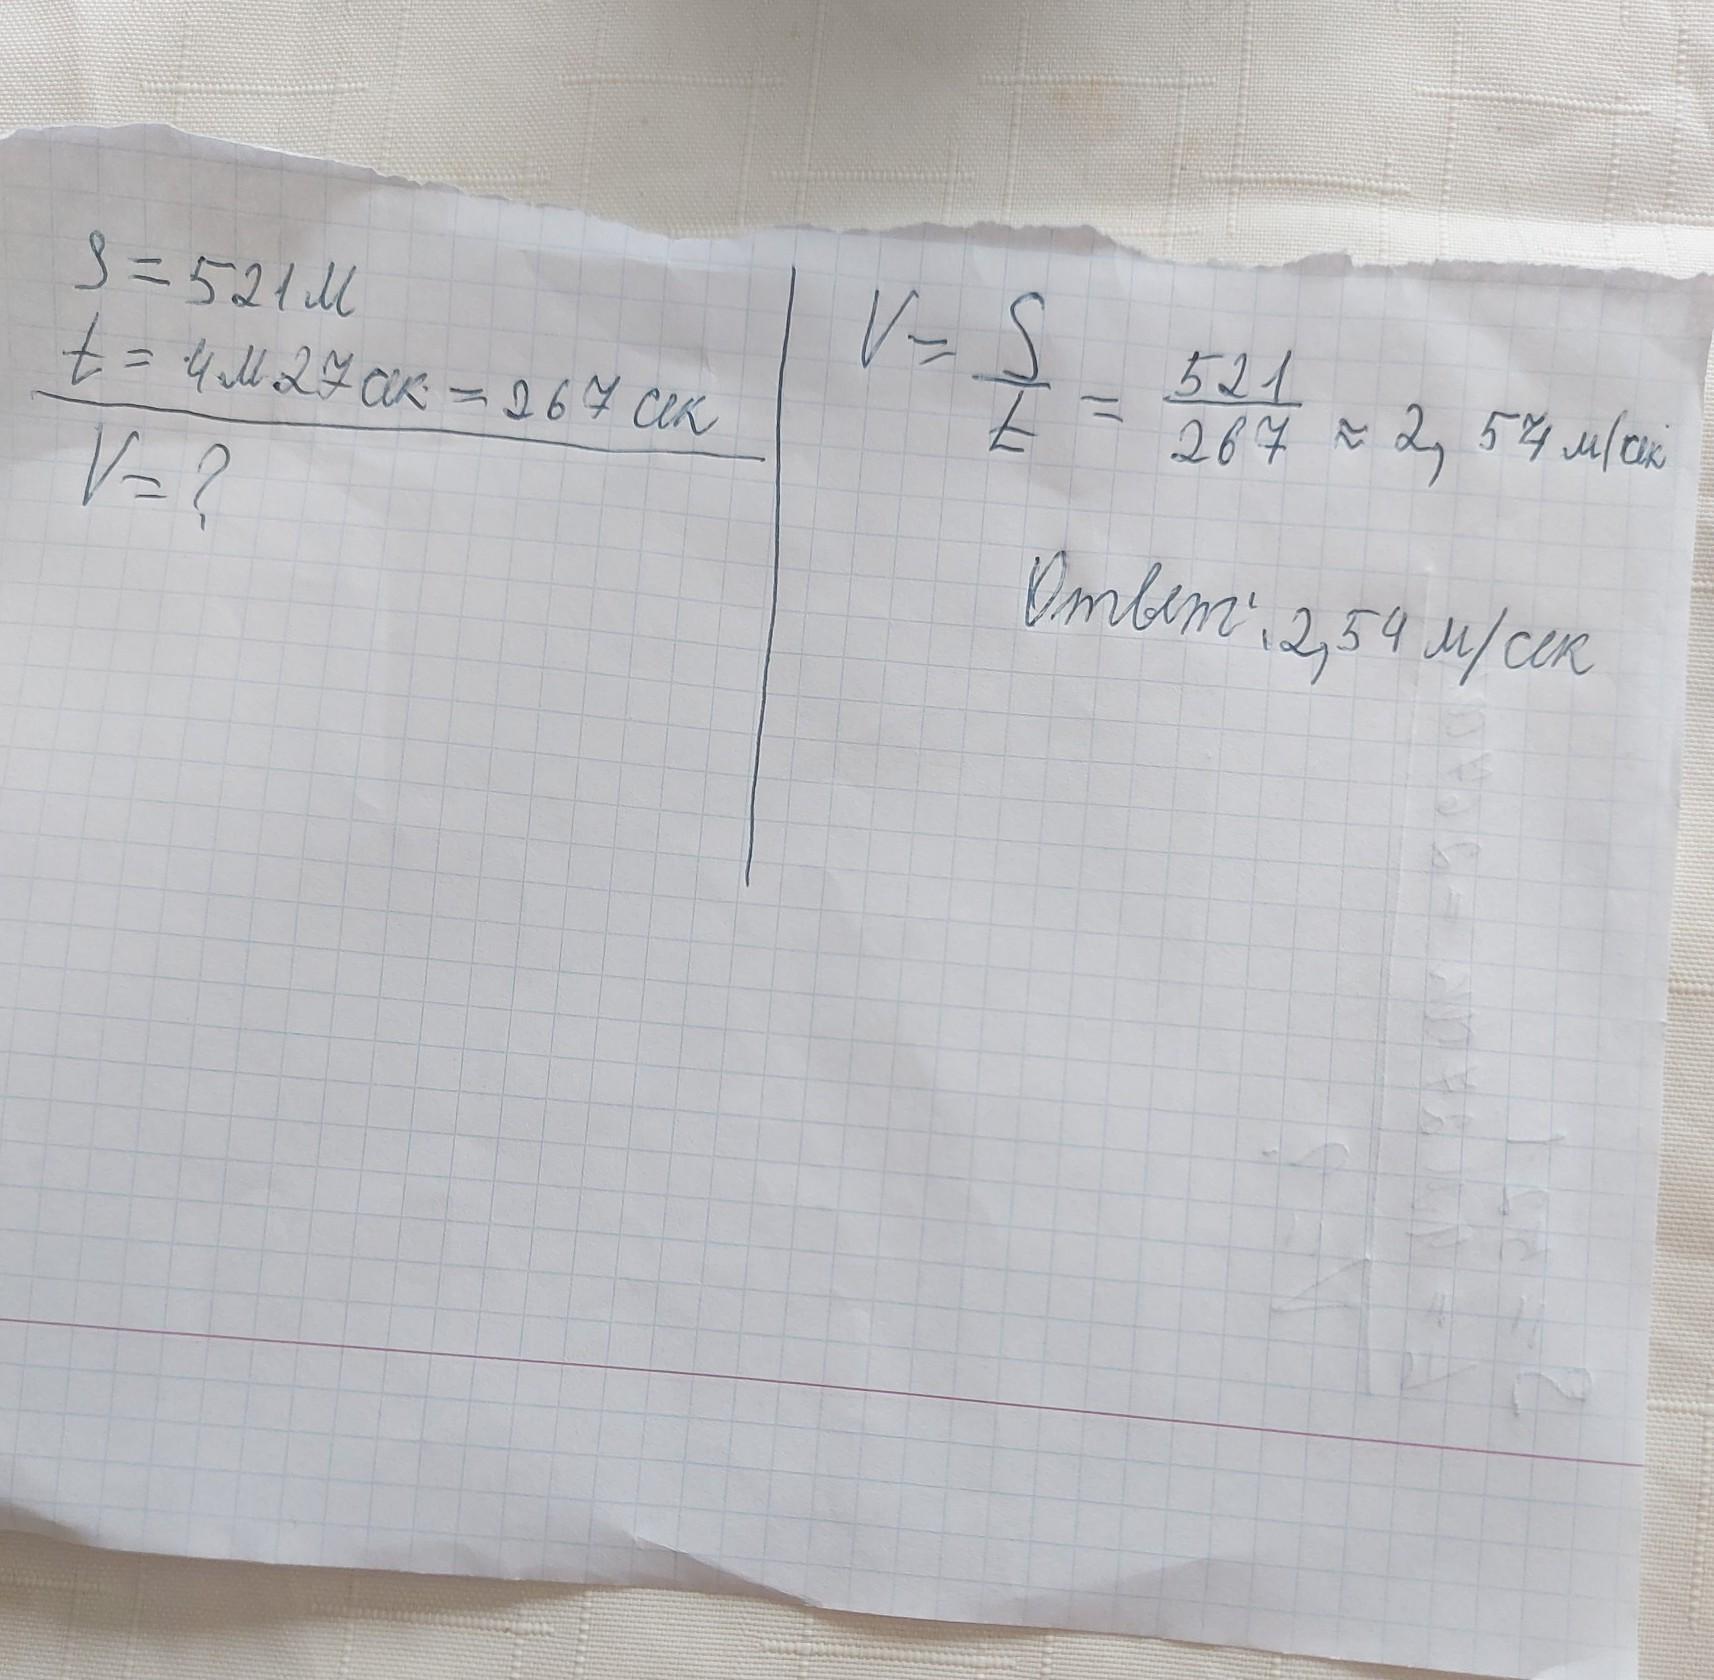 S = 521 м
t = 4 м 27 сек = 267 сек
V = ?
V = S/t = 521/267 ≈ 2,54 м/сек
Ответ: 2,54 м/сек